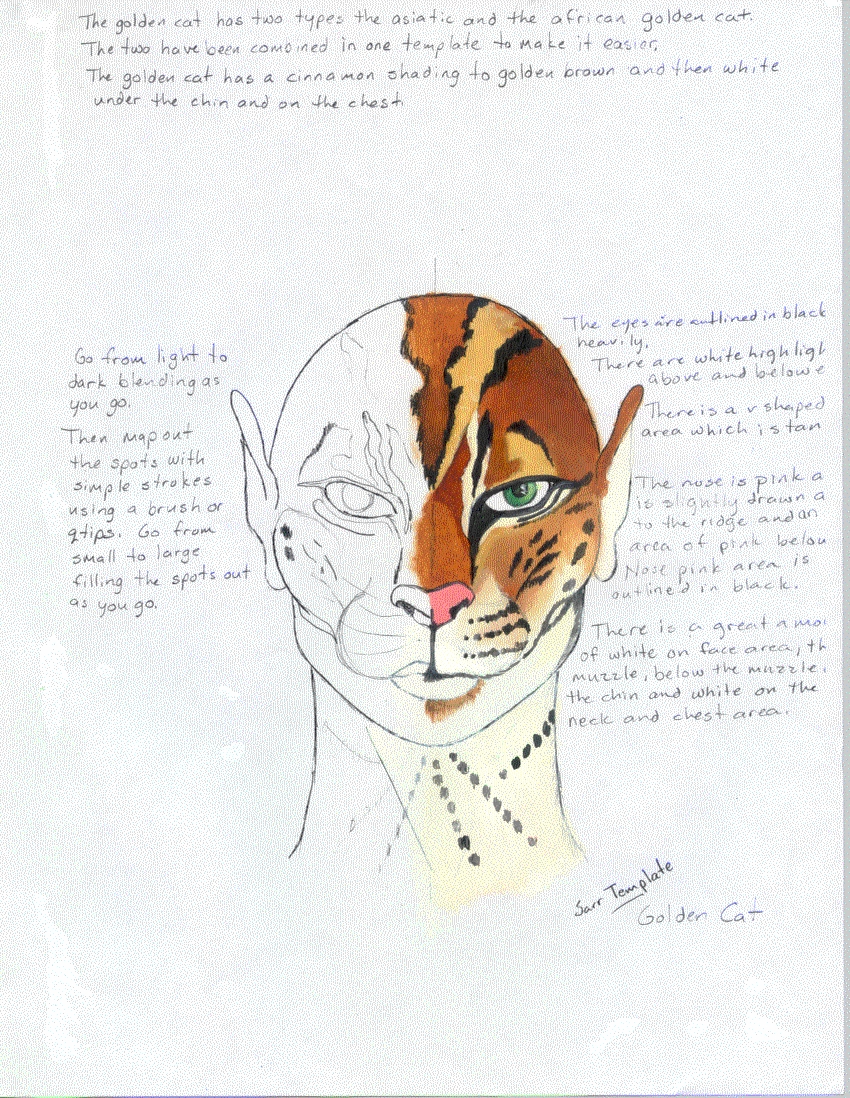 The golden cat has two types the asiatic and the african golden cat.
The two have been combined in one template to make it easier.
The golden cat has a cinnamon shading to golden brown and then white
under the chin and on the chest.
Go from light to
dark blending as
you go.
Then map out
the spots with
simple strokes
using a brush or
qtips. Go from
small to large
filling the spots out
as you go.
The eyes are outlined in black
heavily.
There are white highligh
above and below e
There is a v shaped
area which is tan
The nose is pink a
is slightly drawn a
to the ridge and an
area of pink below
Nose pink area is
outlined in black.
There is a great amou
of white on face area, th
muzzle, below the muzzle,
the chin and white on the
neck and chest area.
Sarr Template
Golden Cat